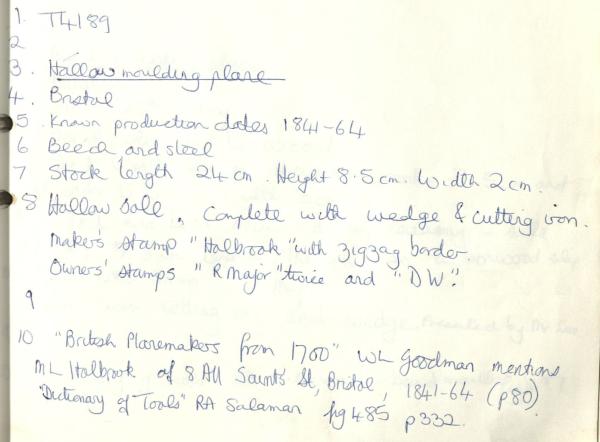 1. T4189
2
3. Hallow moulding plane
4. Bristol
5. Known production dates 1841-64
6 Beech and steel
7 Stock length 24 cm. Height 8.5 cm. Width 2 cm.
8 Hallow sole, Complete with wedge & cutting iron.
Maker's stamp "Holbrook" with zigzag border.
Owners' stamps "R Major" twice and "DW".
9
10 "British Planemakers from 1700" WL Goodman mentions
ML Holbrook of 8 All Saints St, Bristol, 1841-64 (p80).
"Dictionary of Tools" RA Salaman fig 485 p332.